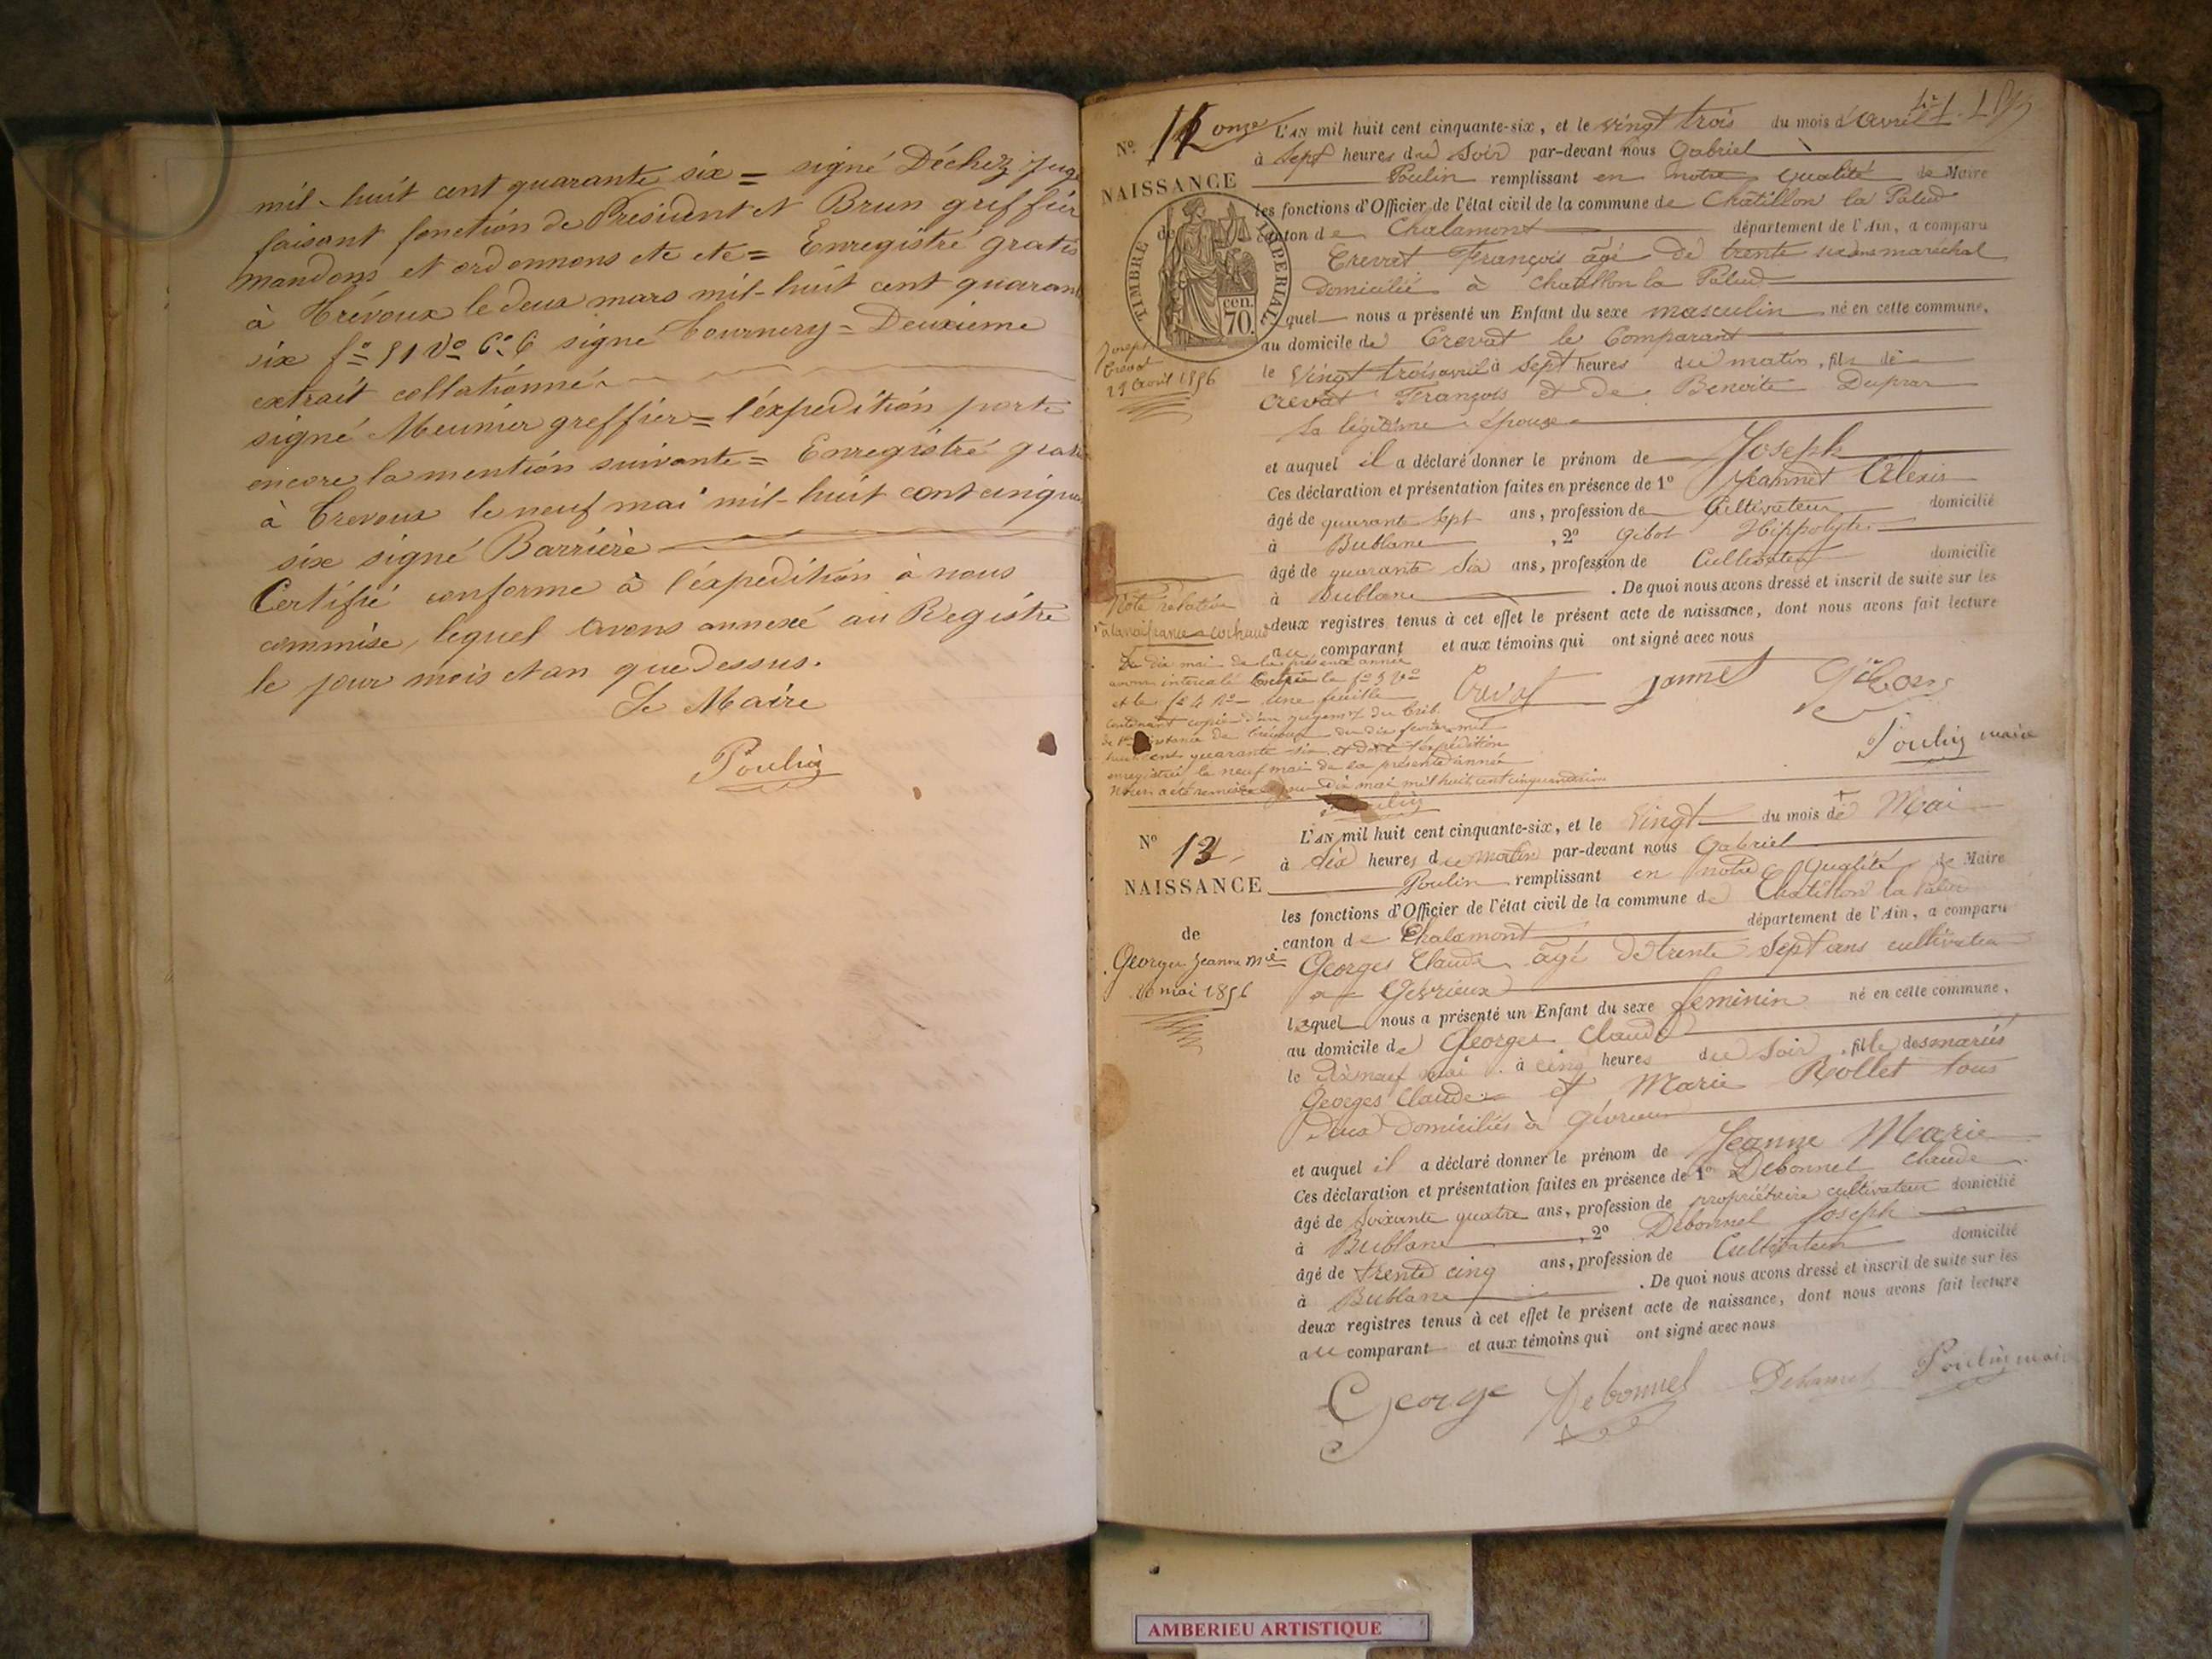 mil-huit cent quarante six = signé Déchez juge
faisant fonction de Président et Brun greffier
mandons et ordonnons etc etc = Enregistré gratis
à Trévoux le deux mars mil-huit cent quarante
six fo 51 Vo Co 6 signé Tournery = Deuxième
extrait collationné
signé Meunier greffier = l'expedition porte
encore la mention suivante = Enregistré gratis
à Trevoux le neuf mai mil-huit cent cinquante
six signé Barrière
Certifié conforme à l'expedition à nous
commise, lequel avons annexé au Registre
le jour mois et an que dessus.
Le Maire
Poulin
No 12 onze L'AN mil huit cent cinquante-six, et le vingt trois du mois d'avril
à Sept heures du Soir par-devant nous Gabriel
NAISSANCE Poulin remplissant en notre qualité de Maire
les fonctions d'Officier de l'état civil de la commune de Chatillon la Palud
de canton de Chalamont département de l'Ain, a comparu
TIMBRE IMPERIAL
cen. 70.
Crevat François âgé de trente six ans maréchal
Domicilié à Chatillon la Palud
quel nous a présenté un Enfant du sexe masculin né en cette commune,
au domicile de Crevat le Comparant
Joseph
Crevat
23 avril 1856
le Vingt trois avril à sept heures du matin, fils de
Crevat François et de Benoite Duprar
Sa légitime épouse
et auquel il a déclaré donner le prénom de Joseph
Ces déclaration et présentation faites en présence de 1o Jeannet Alexis
âgé de quarante Sept ans, profession de Cultivateur domicilié
à Bublane, 2o Gibot Hippolyte
âgé de quarante Six ans, profession de Cultivateur domicilié
à Bublane. De quoi nous avons dressé et inscrit de suite sur les
deux registres tenus à cet effet le présent acte de naissance, dont nous avons fait lecture
au comparant et aux témoins qui ont signé avec nous
Note relative
à la naissance Cochaud
Le dix mai de la présente année
avons intercalé entre le fo 3 Vo
et le fo 4 Ro une feuille
contenant copie d'un jugemt du Trib.
de 1re instance de Trévoux du dix fevrier mil
huit cent quarante six et dont l'expédition
enregistrée le neuf mai de la présente année
nous a été remise ce jour Dix mai mil huit cent cinquante six
Poulin
Crevat Jannet Poulin maire
No 13 L'AN mil huit cent cinquante-six, et le Vingt du mois de Mai
à dix heures du Matin par-devant nous Gabriel
NAISSANCE Poulin remplissant en notre Qualité de Maire
les fonctions d'Officier de l'état civil de la commune de Chatillon la Palud
de canton de Chalamont département de l'Ain, a comparu
Georges Jeanne Mie
20 mai 1856
Georges Claude âgé de trente Sept ans cultivateur
à Gévrieux
lequel nous a présenté un Enfant du sexe feminin né en cette commune,
au domicile de Georges Claude
le Dix neuf mai à cinq heures du Soir, fille des mariés
Georges Claude et Marie Rollet tous
deux Domiciliés à Gévrieux
et auquel il a déclaré donner le prénom de Jeanne Marie
Ces déclaration et présentation faites en présence de 1o Debonnel Claude
âgé de Soixante quatre ans, profession de propriétaire cultivateur domicilié
à Bublane, 2o Debonnel Joseph
âgé de trente cinq ans, profession de Cultivateur domicilié
à Bublane. De quoi nous avons dressé et inscrit de suite sur les
deux registres tenus à cet effet le présent acte de naissance, dont nous avons fait lecture
au comparant et aux témoins qui ont signé avec nous
George Debonnel Debonnel Poulin maire
AMBERIEU ARTISTIQUE